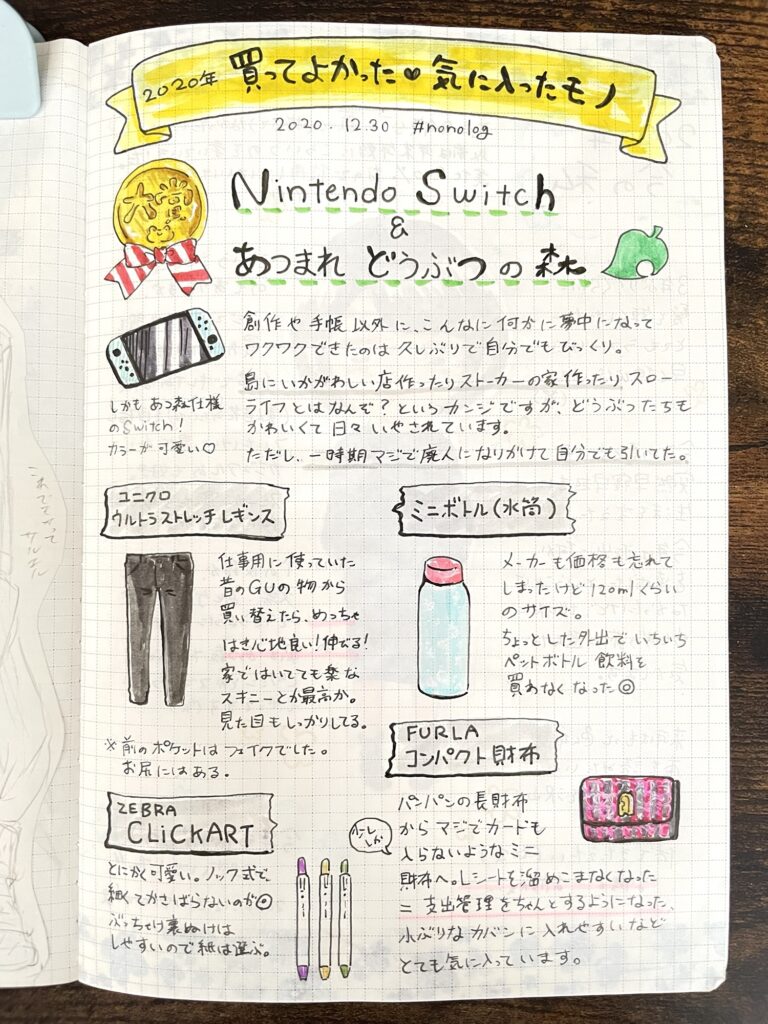 2020年 買ってよかった♥気に入ったモノ
2020.12.30 #nonolog
大賞
Nintendo Switch
&
あつまれ どうぶつの森
創作や手帳以外に、こんなに何かに夢中になって
ワクワクできたのは久しぶりで自分でもびっくり。
島にいかがわしい店作ったりストーカーの家作ったり スロー
ライフとはなんぞ?というカンジですが、どうぶつたちも
かわいくて日々いやされています。
ただし、一時期マジで廃人になりかけて自分でも引いてた。
しかもあつ森仕様
のSwitch!
カラーが可愛い♡
ユニクロ
ウルトラストレッチレギンス
仕事用に使っていた
昔のGUの物から
買い替えたら、めっちゃ
はき心地良い!伸びる!
家ではいてても楽な
スキニーとか最高か。
見た目もしっかりしてる。
※前のポケットはフェイクでした。
お尻にはある。
ミニボトル(水筒)
メーカーも価格も忘れて
しまったけど120mlくらい
のサイズ。
ちょっとした外出でいちいち
ペットボトル飲料を
買わなくなった◎
FURLA
コンパクト財布
パンパンの長財布
からマジでカードも
入らないようなミニ
財布へ。レシートを溜めこまなくなった
=支出管理をちゃんとするようになった、
小ぶりなカバンに入れやすいなど
とても気に入っています。
ZEBRA
CLiCKART
とにかく可愛い。ノック式で、
細くてかさばらないのが◎
ぶっちゃけ裏ぬけは
しやすいので紙は選ぶ。